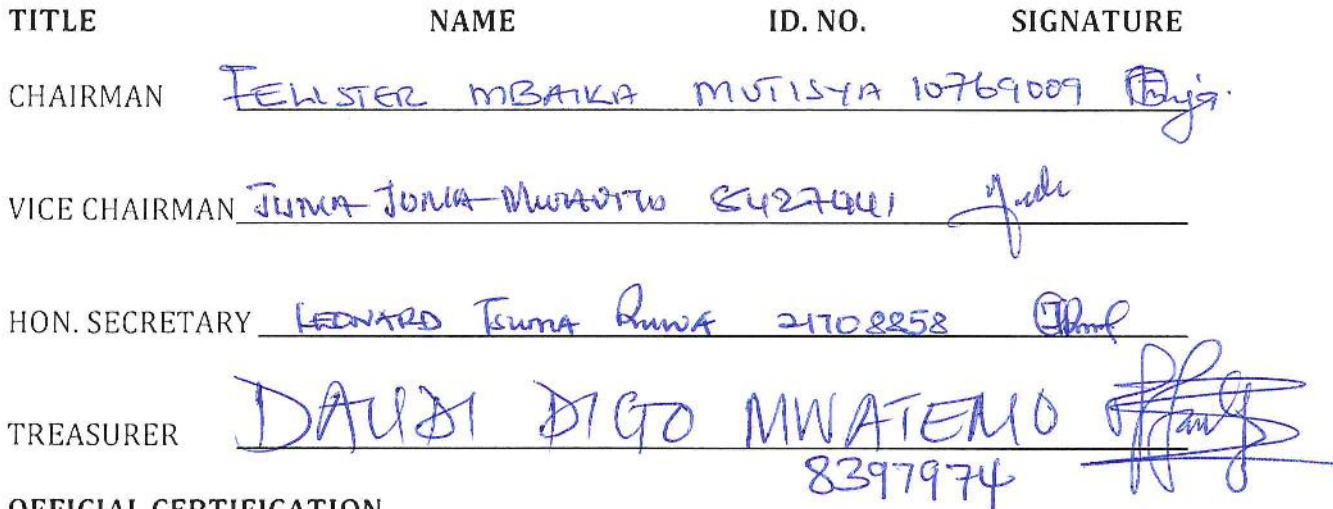 TITLE NAME ID. NO. SIGNATURE
CHAIRMAN FELISTER MBAIKA MUTISYA 10769009
VICE CHAIRMAN JUMA JUMA
HON. SECRETARY LEONARD TSUMA RUWA 21708858
TREASURER DAUDI DIGO MWATEMO
8397974
OFFICIAL CERTIFICATION